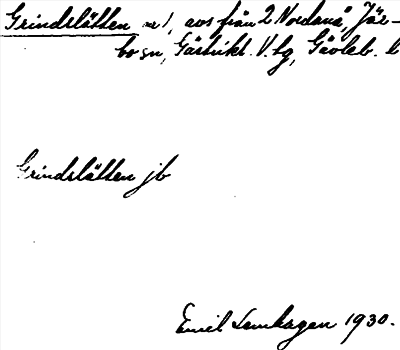 Grindslätten nr 1, avs från 2 Nordanå, Jär-
bo sn, Gästrikl. V. tg, Gävleb. l
Grindslätten jb
Emil Lemhagen 1930.